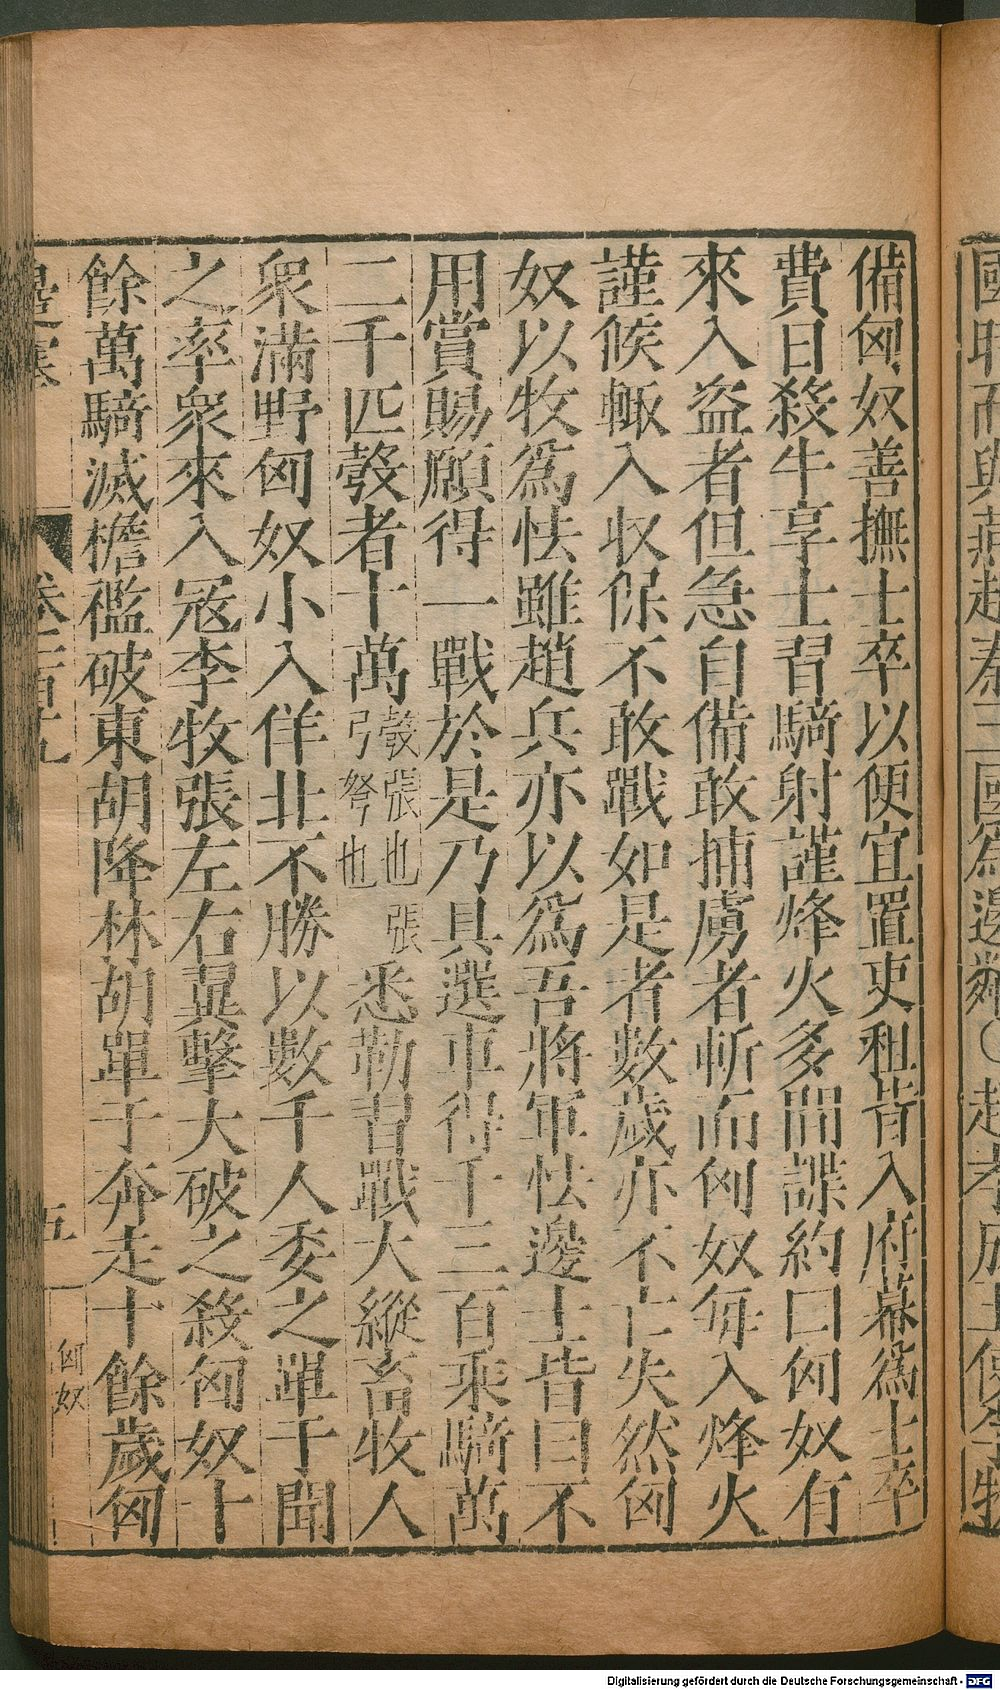 備匈奴善撫士卒以便宜置吏租皆入府幕爲士卒
費日殺牛享士習騎射謹烽火多間諜約曰匈奴有
來入盜者但急自備敢捕虜者斬而匈奴每入烽火
謹候輙入收保不敢戰如是者數歲亦不亡失然匈
奴以牧爲怯雖趙兵亦以爲吾將軍怯邊士皆曰不
用賞賜願得一戰於是乃具選車得千三百乘騎萬
二千匹彀者十萬
彀張也張
弓弩也
悉勒習戰大縱畜牧人
衆滿野匈奴小入佯北不勝以數千人委之單于聞
之率衆來入冦李牧張左右翼擊大破之殺匈奴十
餘萬騎滅襜襤破東胡降林胡單于奔走十餘歲匈
五
匈奴
Digitalisierung gefördert durch die Deutsche Forschungsgemeinschaft - DFG